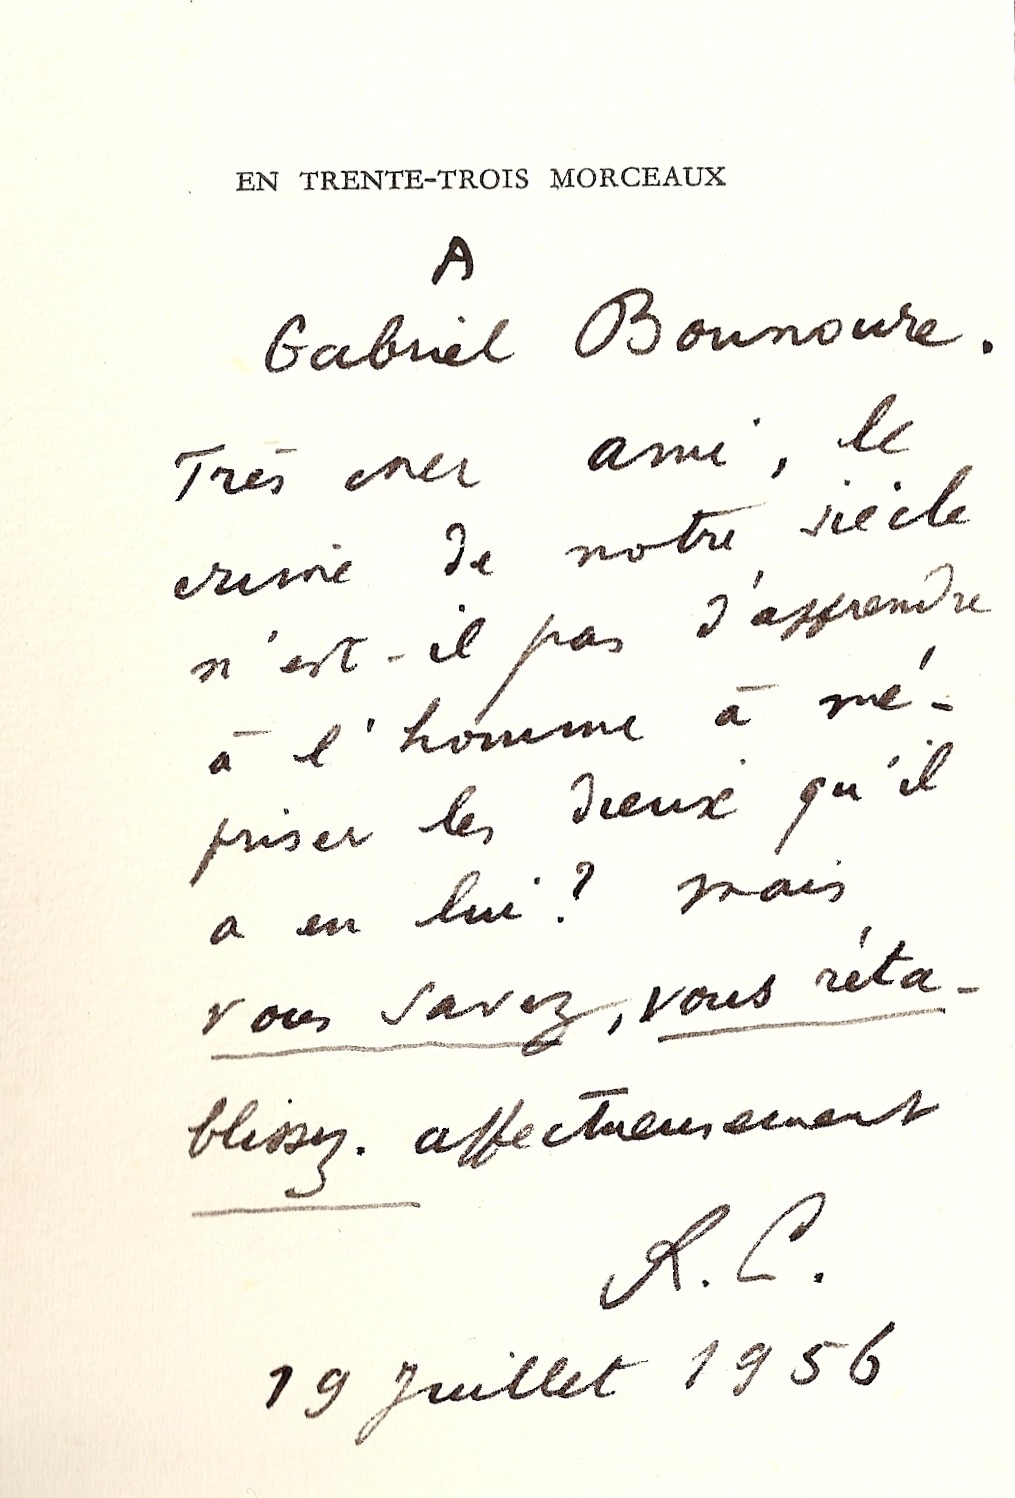 EN TRENTE-TROIS MORCEAUX
A
Gabriel Bounoure.
Très cher ami, le
crime de notre siècle
n'est-il pas d'apprendre
à l'homme à mé-
priser les dieux qu'il
a en lui? Mais
vous savez, vous réta-
blissez. affectueusement
R. C.
19 Juillet 1956